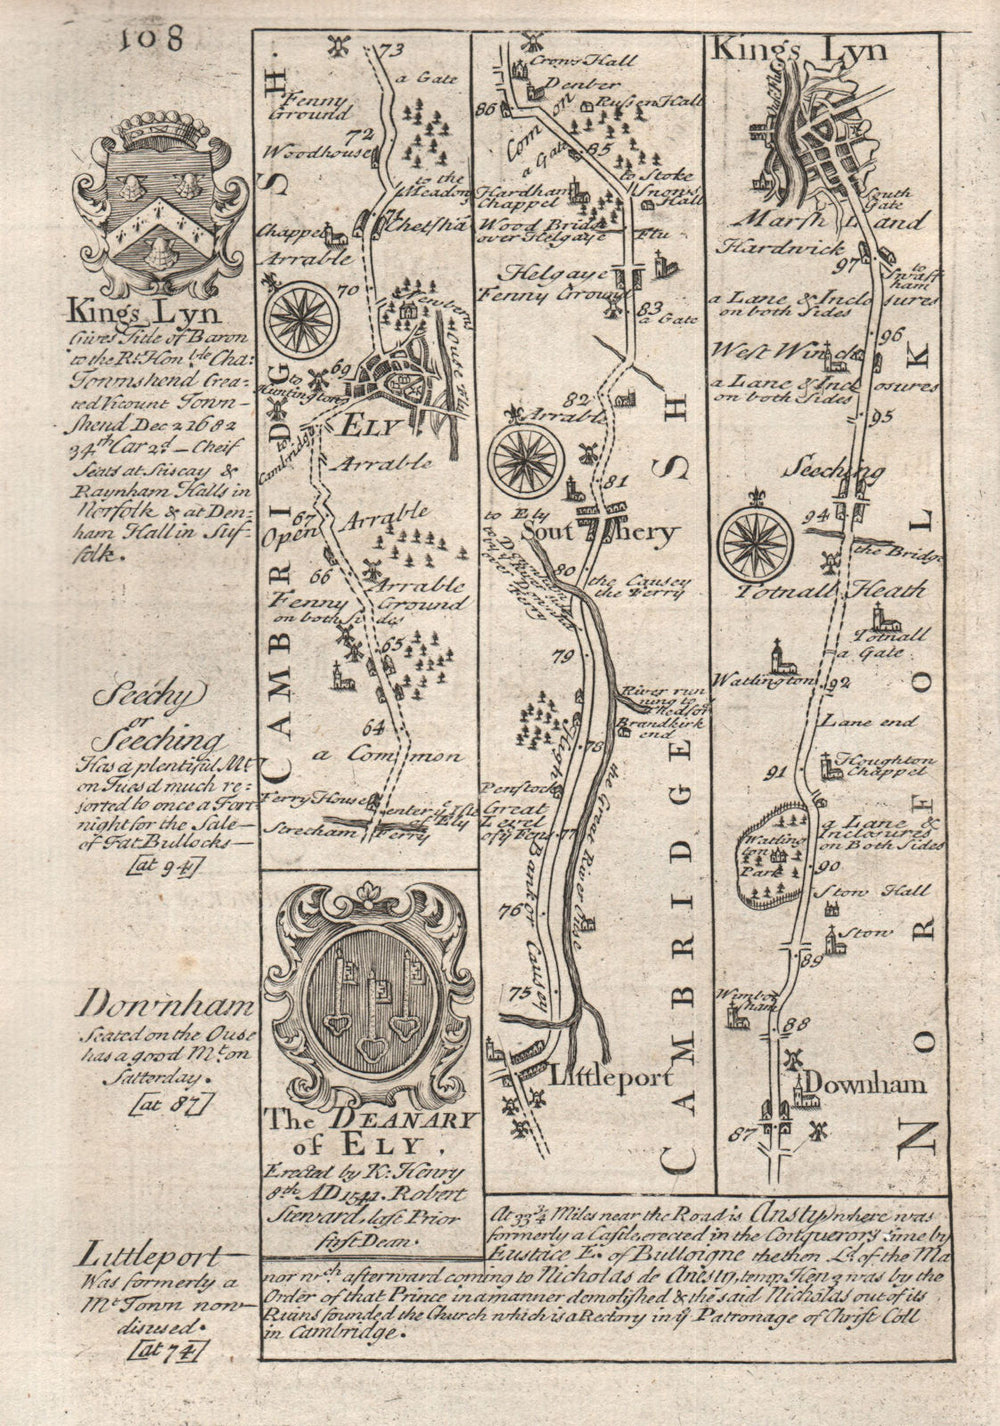 108
Kings Lyn
Gives Title of Baron
to the Rt. Honble. Cha:
Townshend Crea-
ted Vicount Town-
shend Dec 2 1682
34th Car 2d - Cheif
Seats at Stiscay &
Raynham Halls in
Norfolk & at Den:
ham Hall in Suf-
folk.
Seechy
or
Seeching
Has a plentiful Mt
on Tuesd much re:
sorted to once a Fort
night for the Sale
of Fat Bullocks
[at 94]
Downham
Seated on the Ouse
has a good Mt. on
Satterday.
[at 87]
Littleport
Was formerly a
Mt Town now
disused.
[at 74]
CAMBRIDG SH.
73
a Gate
Fenny
Ground
72
Woodhouse
to the
Meadow
71
Chetsha
Chappel
Arrable
70
Newborns
Ouse flu
69
to
Huntington
ELY
to
Cambridge
Arrable
67
Arrable
Open
66
Arrable
Fenny Ground
on both Sides
65
64
a Common
Ferry House
enter ye Isle
of Ely
Strecham Ferry
The DEANARY
of ELY.
Erected by K: Henry
8th. AD 1541. Robert
Steward, last Prior
first Dean.
Crows Hall
Denber
86
Russen Hall
Common
a Gate
85
to Stoke
Hardham
Chappel
Snows
Hall
Wood Bridg
over Helgaye Flu
Helgaye
Fenny Ground
83
a Gate
82
Arrable
81
to Ely
Southery
80
the Causey
the Ferry
79
River run
ning to
Brandkirk
end
78
High
Penstock
Great
Level
of ye Fens
77
Bank or Causey
the Great River Ouse
76
75
Littleport
CAMBRIDGE SH
Kings Lyn
South
Gate
Marsh Land
Hardwick
97
to
Swaff
ham
a Lane & Inclosures
on both Sides
96
West Winch
a Lane & Inclosures
on both Sides
95
Seeching
94
the Bridg
Totnall Heath
Totnall
a Gate
Watlington
92
Lane end
91
Houghton
Chappel
a Lane &
Inclosures
on Both Sides
Watling
ton
Park
90
Stow Hall
Stow
89
Wimbot
ham
88
Downham
87
NORFOLK
At 93 3/4 Miles near the Road is Ansty where was
formerly a Castle erected in the Conquerors time by
Eustace E. of Bulloigne the then Ld. of the Ma
nor wch. afterward coming to Nicholas de Anesty, temp. Hen 3 was by the
Order of that Prince in a manner demolished & the said Nicholas out of its
Ruins founded the Church which is a Rectory in ye Patronage of Christ Coll
in Cambridge.